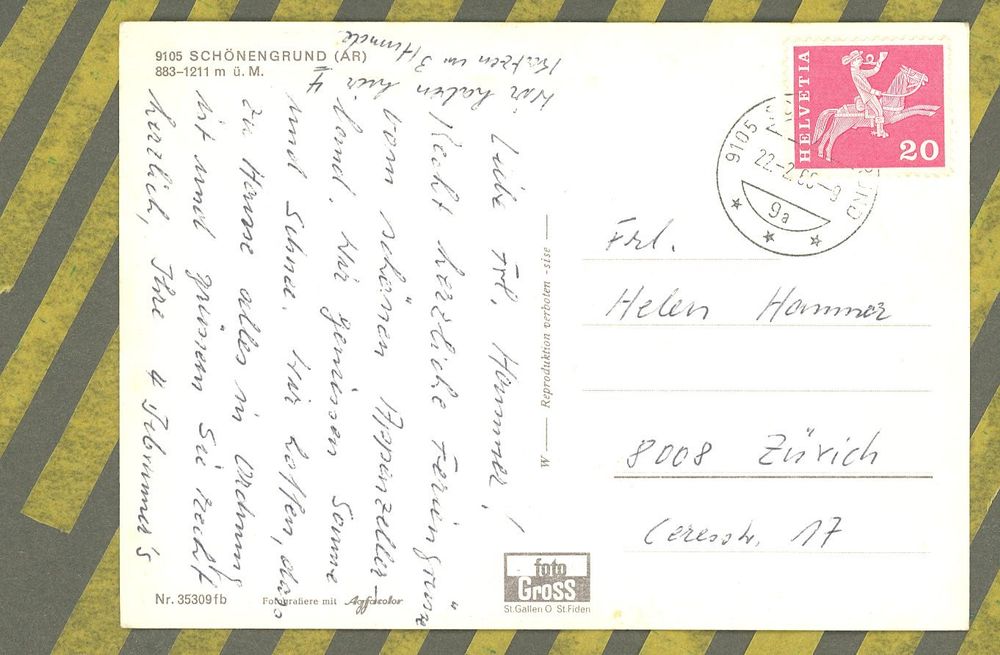 9105 SCHÖNENGRUND (AR)
883–1211 m ü. M.
Wir haben hier 4
Katzen im 3. Himmel
Liebe Frl. Hammer,
Recht herzliche Feriengrüsse
vom schönen Appenzeller-
land. Wir geniessen Sonne
und Schnee. Wir hoffen, dass
zu Hause alles in Ordnung
ist und grüssen Sie recht
herzlich, Ihre 4
W — Reproduktion verboten - sise —
HELVETIA
20
9105
22.-2.
-9
9a
Frl.
Helen Hammer
8008 Zürich
Ceresstr. 17
Nr. 35309fb
Fotografiere mit Agfacolor
foto
Gross
St.Gallen O St.Fiden